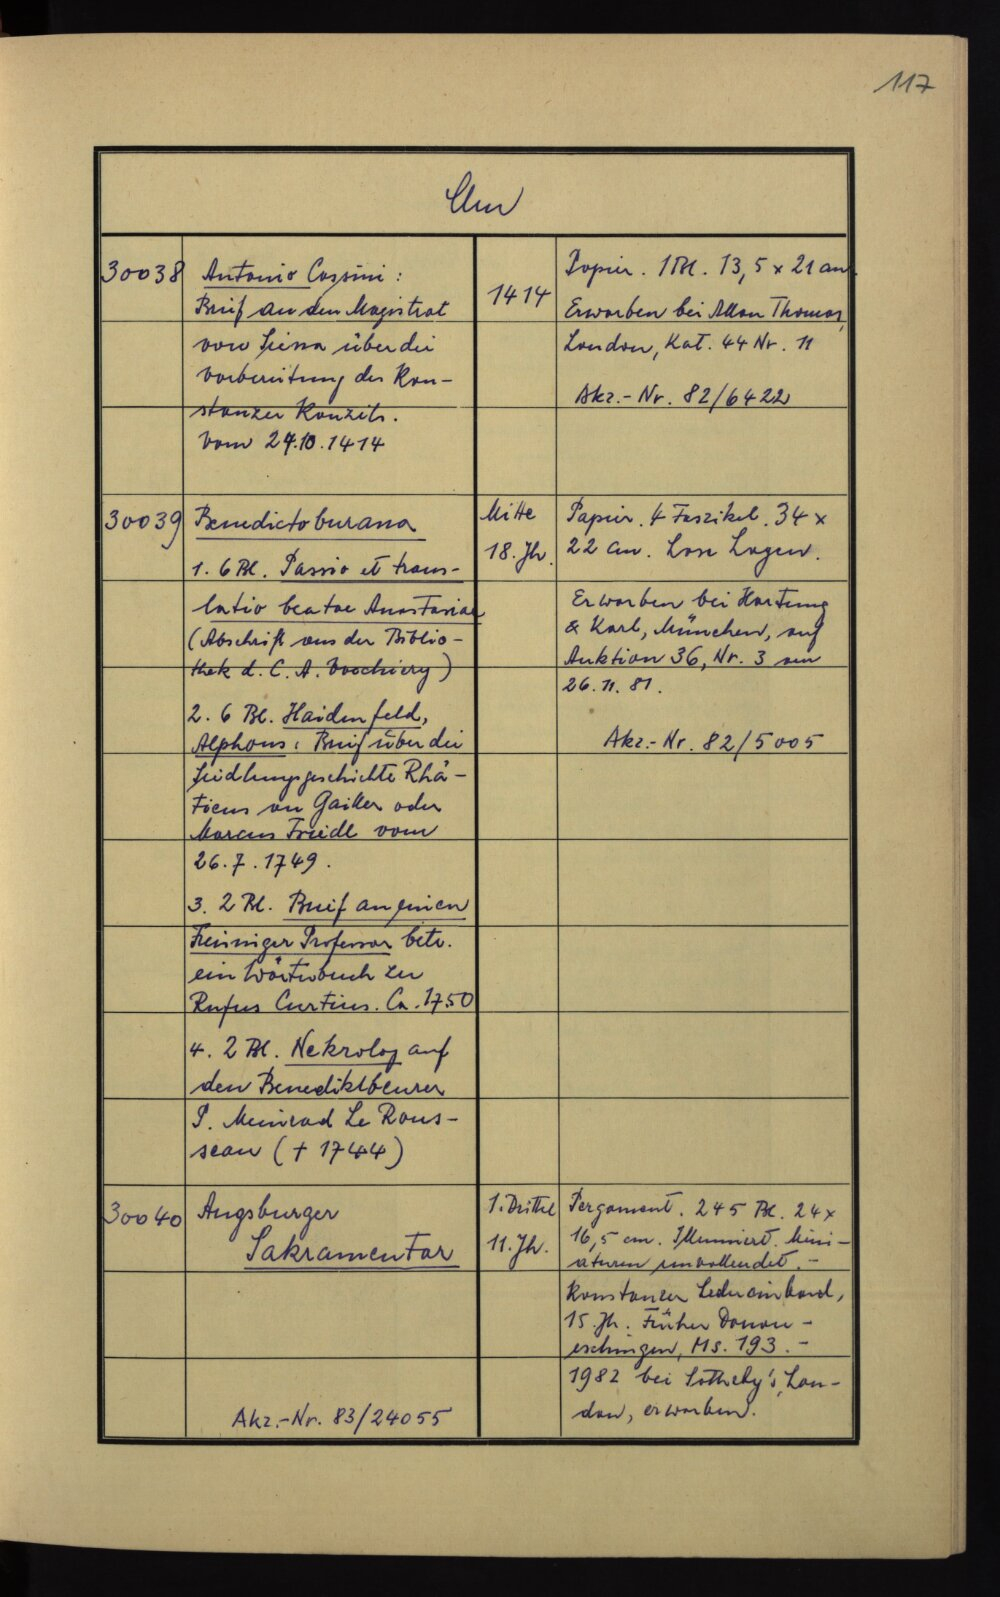 117
Clm
30038
Antonio Cassini :
Brief an den Magistrat
von Siena über die
Vorbereitung des Kon-
stanzer Konzils.
vom 24.10.1414
1414
Papier. 1 Bl. 13,5 x 21 cm.
Erworben bei Allan Thomas,
London, Kat. 44 Nr. 11
Akz.-Nr. 82/6422
30039
Benedictoburana
1. 6 Bl. Passio et trans-
latio beatae Anastasiae
(Abschrift aus der Biblio-
thek d. C. A.
2. 6 Bl. Haidenfeld,
Alphons: Brief über die
Siedlungsgeschichte Rhä-
tiens an Gailler oder
Marcus Friedl vom
26.7.1749.
3. 2 Bl. Brief an einen
Freisinger Professor betr.
ein Wörterbuch zu
Rufus Curtius. Ca. 1750
4. 2 Bl. Nekrolog auf
den Benediktbeurer
P. Meinrad Le Rous-
seau († 1744)
Mitte
18. Jh.
Papier. 4 Faszikel. 34 x
22 cm. Lose Lagen.
Erworben bei Hartung
& Karl, München, auf
Auktion 36, Nr. 3 am
26.11.81.
Akz.-Nr. 82/5005
30040
Augsburger
Sakramentar
Akz.-Nr. 83/24055
1. Drittel
11. Jh.
Pergament. 245 Bl. 24 x
16,5 cm. Illuminiert. Mini-
aturen unvollendet. -
Konstanzer Ledereinband,
15. Jh. Früher Donau-
eschingen, Ms. 193. -
1982 bei Sotheby's, Lon-
don, erworben.